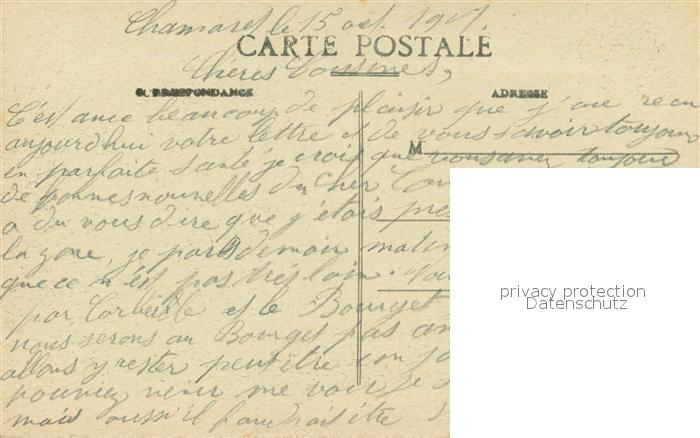 Chamaret le 15 oct. 191
CARTE POSTALE
Chères Cousines,
CORRESPONDANCE
ADRESSE
C'est avec beaucoup de plaisir que j'ai recu
aujourdhui votre lettre et de vous savoir toujour
M
en parfaite santé je crois que vous avez toujour
de bonnes nouvelles du cher
a du vous dire que j'étais
la zone, je pars demain matin
que ce n'est pas très loin.
par Corbeille et le Bourget
nous serons au Bourget pas
allons y rester peut être
pourriez venir me voir
mais aussi il faudrait être
privacy protection
Datenschutz